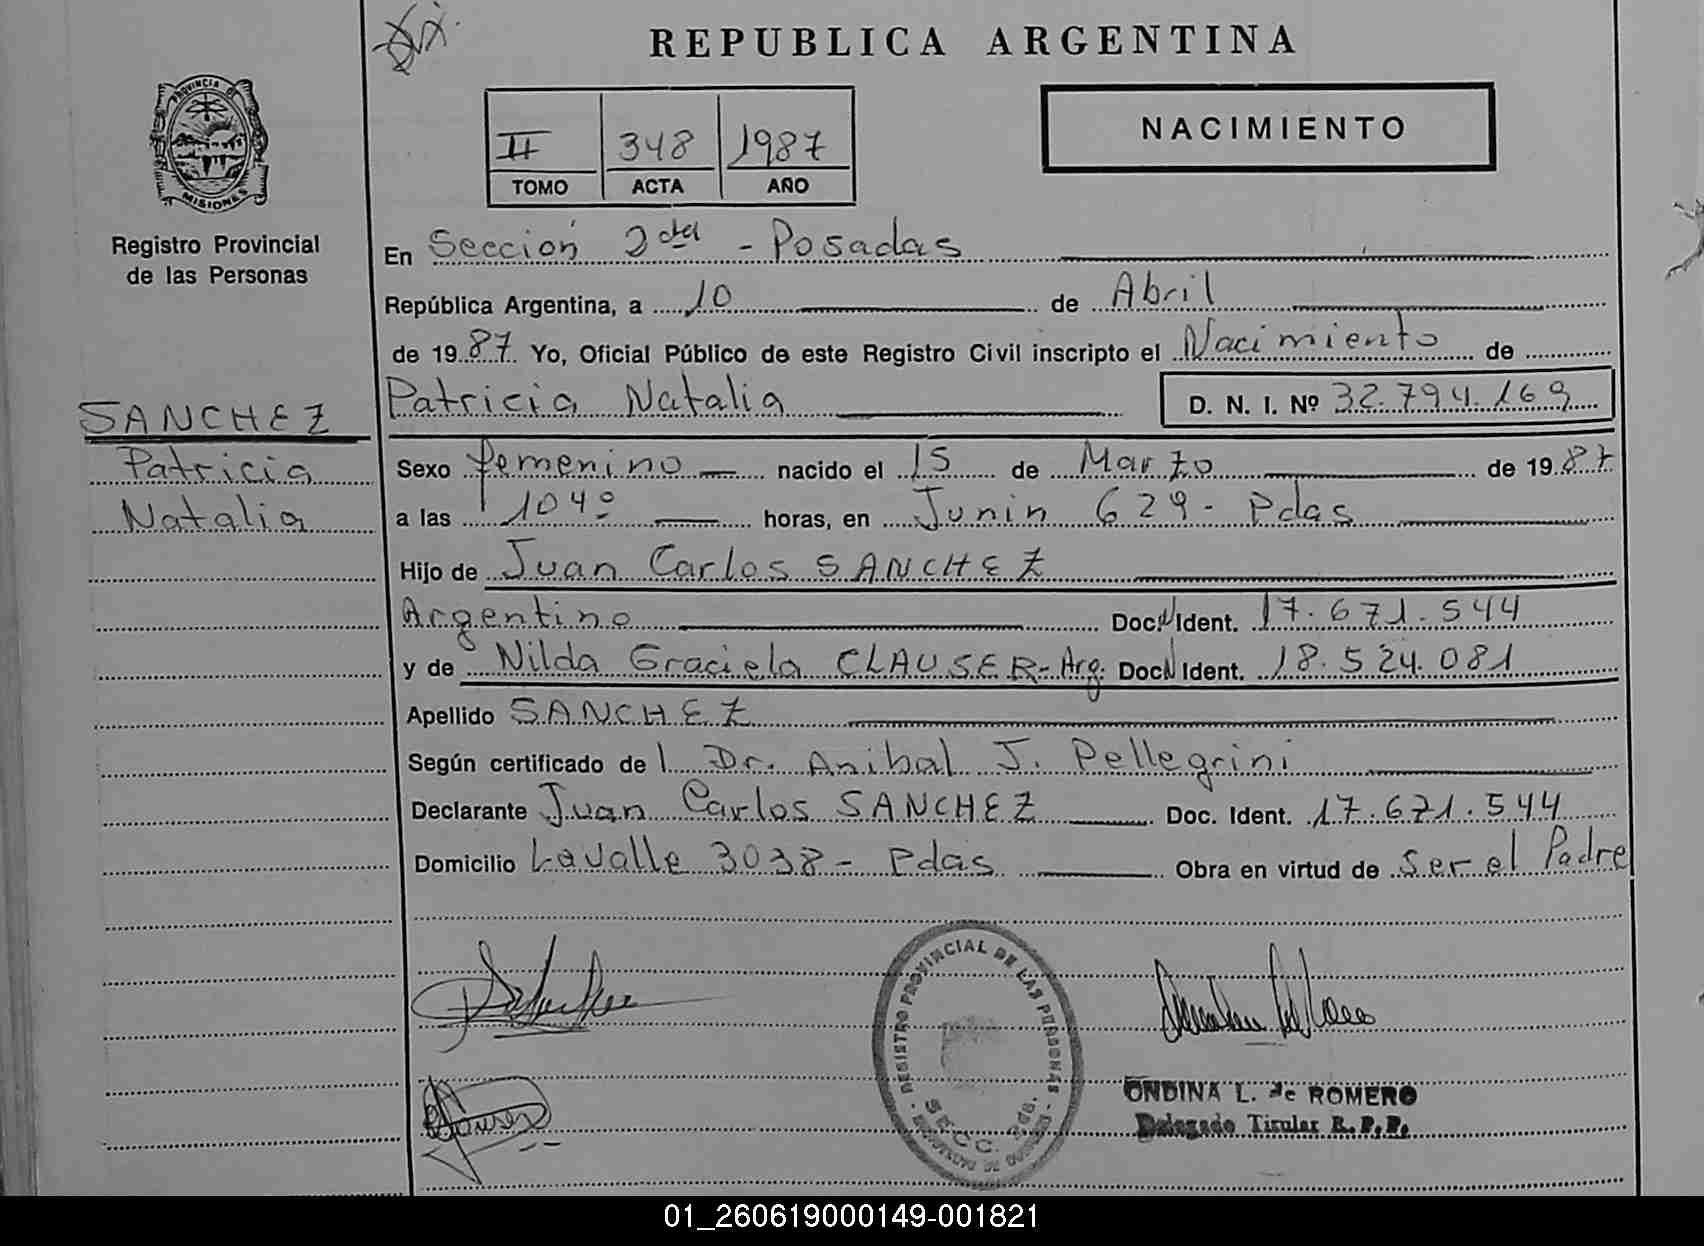 REPUBLICA ARGENTINA
PROVINCIA DE MISIONES
Registro Provincial
de las Personas
II 348 1987
TOMO ACTA AÑO
NACIMIENTO
En Sección 2da - Posadas
República Argentina, a 10 de Abril
de 1987 Yo, Oficial Público de este Registro Civil inscripto el Nacimiento de
Patricia Natalia D. N. I. Nº 32.794.169
SANCHEZ
Patricia
Natalia
Sexo femenino nacido el 15 de Marzo de 1987
a las 1040 horas, en Junin 629 - Pdas
Hijo de Juan Carlos SANCHEZ
Argentino Doc. Ident. 17.671.544
y de Nilda Graciela CLAUSER - Arg. Doc. Ident. 18.524.081
Apellido SANCHEZ
Según certificado de l Dr. Anibal J. Pellegrini
Declarante Juan Carlos SANCHEZ Doc. Ident. 17.671.544
Domicilio Lavalle 3038 - Pdas Obra en virtud de Ser el Padre
REGISTRO PROVINCIAL DE LAS PERSONAS
SECC. 2da.
ONDINA L. de ROMERO
Delegado Titular R.P.P.
01_260619000149-001821